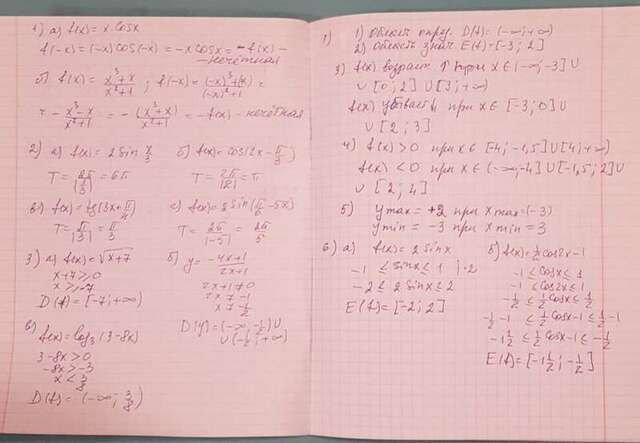 1) а) f(x) = x cosx
f(-x) = (-x)cos(-x) = -x cosx = -f(x) -
- нечётная
б) f(x) = x³+x / x²+1 ; f(-x) = (-x)³+(-x) / (-x)²+1 =
= -x³-x / x²+1 = -(x³+x) / x²+1 = -f(x) - нечётная
2) а) f(x) = 2 sin x/3
T = 2π / |1/3| = 6π
б) f(x) = cos(2x - π/3)
T = 2π / |2| = π
в) f(x) = tg(3x + π/4)
T = π / |3| = π/3
с) f(x) = 8 sin(π/6 - 5x)
T = 2π / |-5| = 2π/5
3) а) f(x) = √x+7
x+7 ≥ 0
x ≥ -7
D(f) = [-7; +∞)
б) y = -4x+1 / 2x+1
2x+1 ≠ 0
2x ≠ -1
x ≠ -1/2
D(y) = (-∞; -1/2) ∪
∪ (-1/2; +∞)
в) f(x) = log₃(3-8x)
3-8x > 0
-8x > -3
x < 3/8
D(f) = (-∞; 3/8)
1) Область опред. D(f) = (-∞; +∞)
2) Область знач. E(f) = [-3; 2]
3) f(x) возраст. ↑ при x ∈ (-∞; -3] ∪
∪ [0; 2] ∪ [3; +∞)
f(x) убывает ↓ при x ∈ [-3; 0] ∪
∪ [2; 3]
4) f(x) > 0 при x ∈ [-4; -1,5] ∪ [4; +∞)
f(x) < 0 при x ∈ (-∞; -4] ∪ [-1,5; 2] ∪
∪ [2; 4]
5) y max = +2 при x max = (-3)
y min = -3 при x min = 3
6) а) f(x) = 2 sinx
-1 ≤ sinx ≤ 1 | ·2
-2 ≤ 2 sinx ≤ 2
E(f) = [-2; 2]
б) f(x) = 1/2 cos2x-1
-1 ≤ cosx ≤ 1
-1 ≤ cos2x ≤ 1
-1/2 ≤ 1/2 cosx ≤ 1/2
-1/2 -1 ≤ 1/2 cosx-1 ≤ 1/2 -1
-1 1/2 ≤ 1/2 cosx-1 ≤ -1/2
E(f) = [-1 1/2; -1/2]